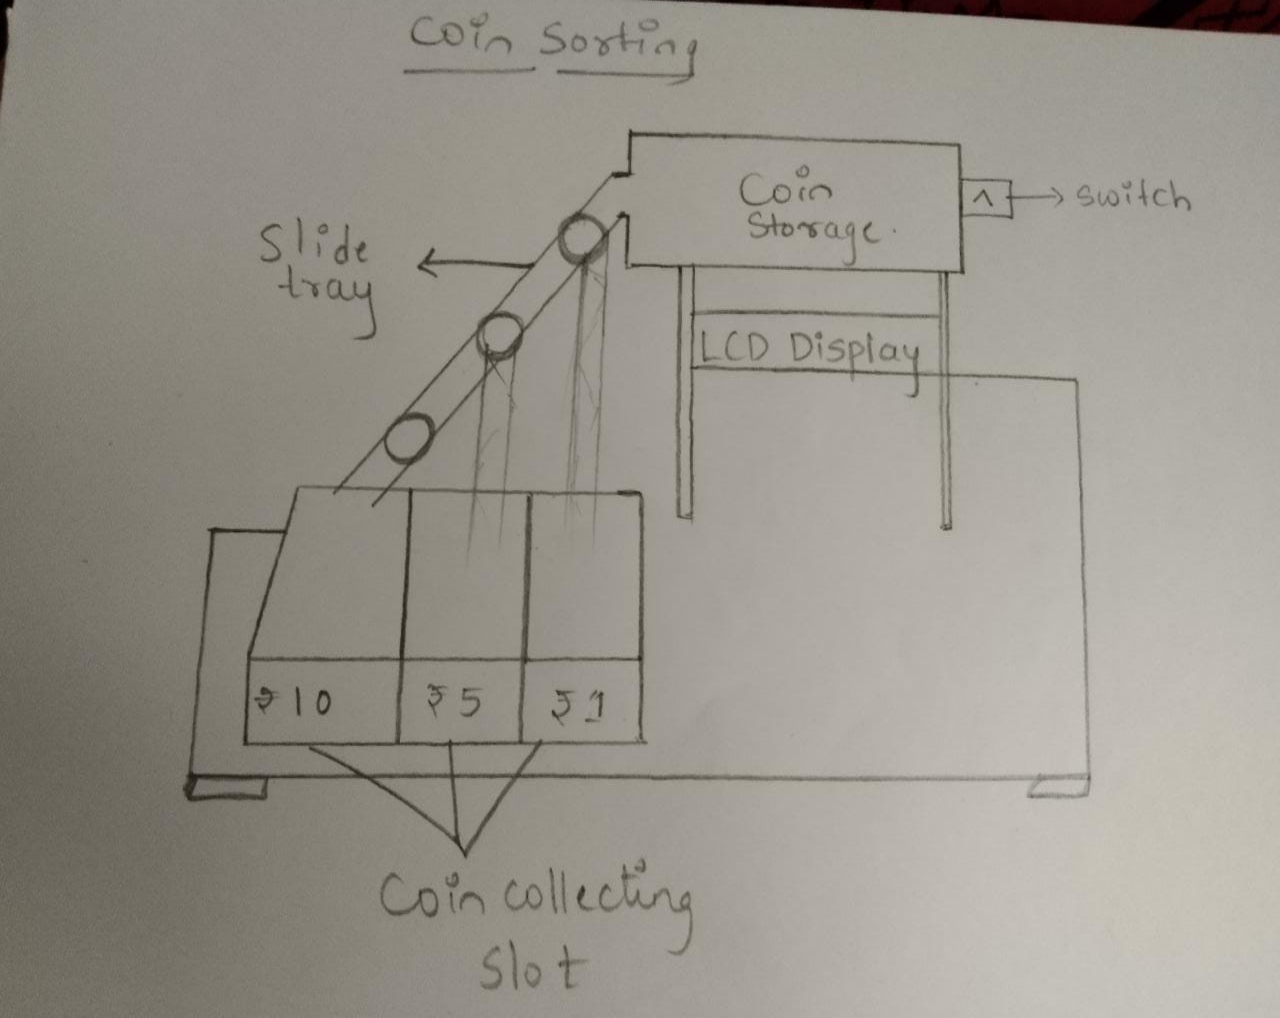 Coin Sorting
Coin
Storage.
^
switch
Slide
tray
LCD Display
₹10
₹5
₹1
Coin collecting
slot